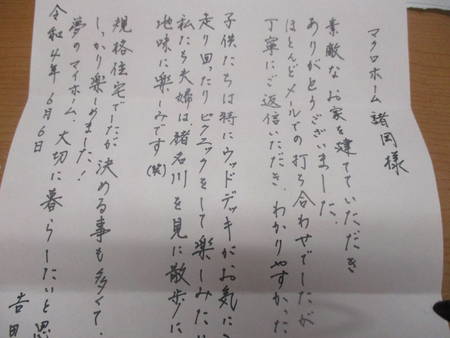 マクロホーム 諸岡様
素敵なお家を建てていただき
ありがとうございました。
ほとんどメールでの打ち合わせでしたが
丁寧にご返信いただき、わかりやすかった
子供たちは特にウッドデッキがお気に
走り回ったりピクニックをして楽しみたい
私たち夫婦は、猪名川を見に散歩に
地味に楽しみです(笑)
規格住宅でしたが決める事も多くて、
しっかり楽しめました！
夢のマイホーム、大切に暮らしたいと思
令和4年 6月6日
吉田